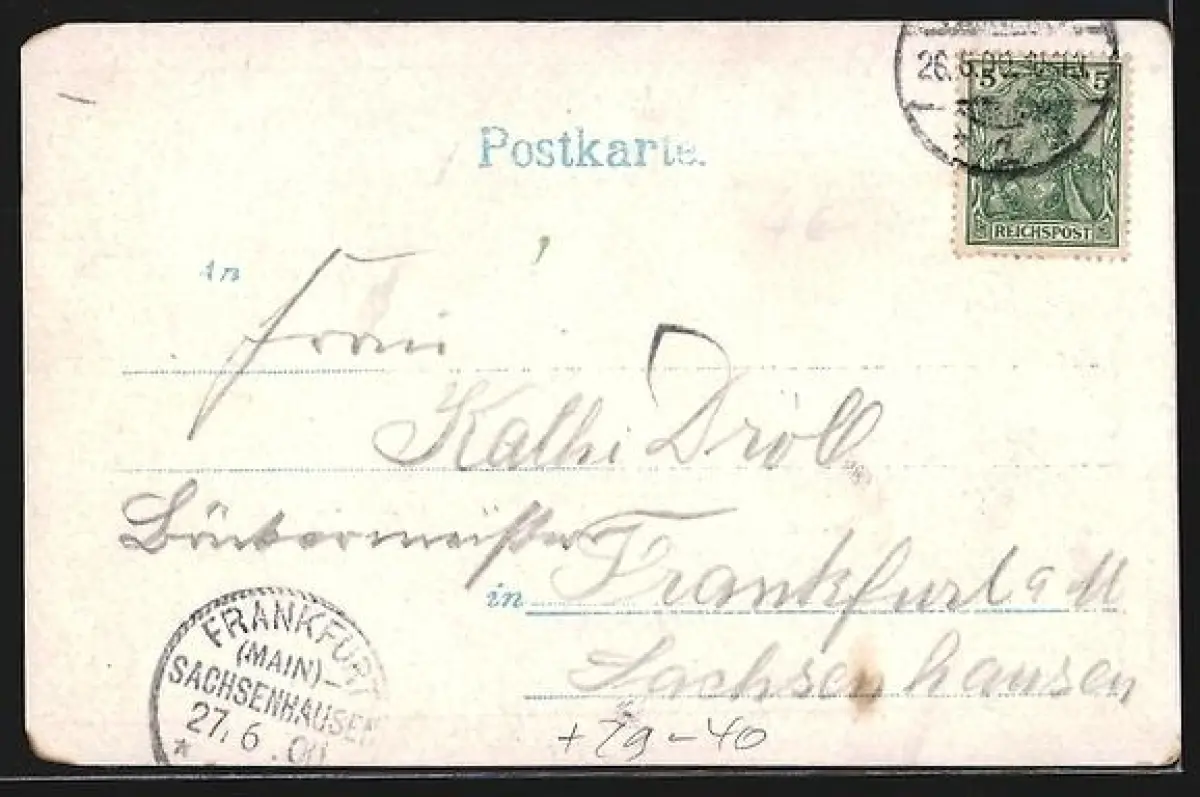 26.6.00.
5 5
REICHSPOST
Postkarte.
An
Frau
Kathi Dröll
Bäckermeister
in Frankfurt a M
Sachsenhausen
FRANKFURT
(MAIN)-
SACHSENHAUSEN
27.6.00
*